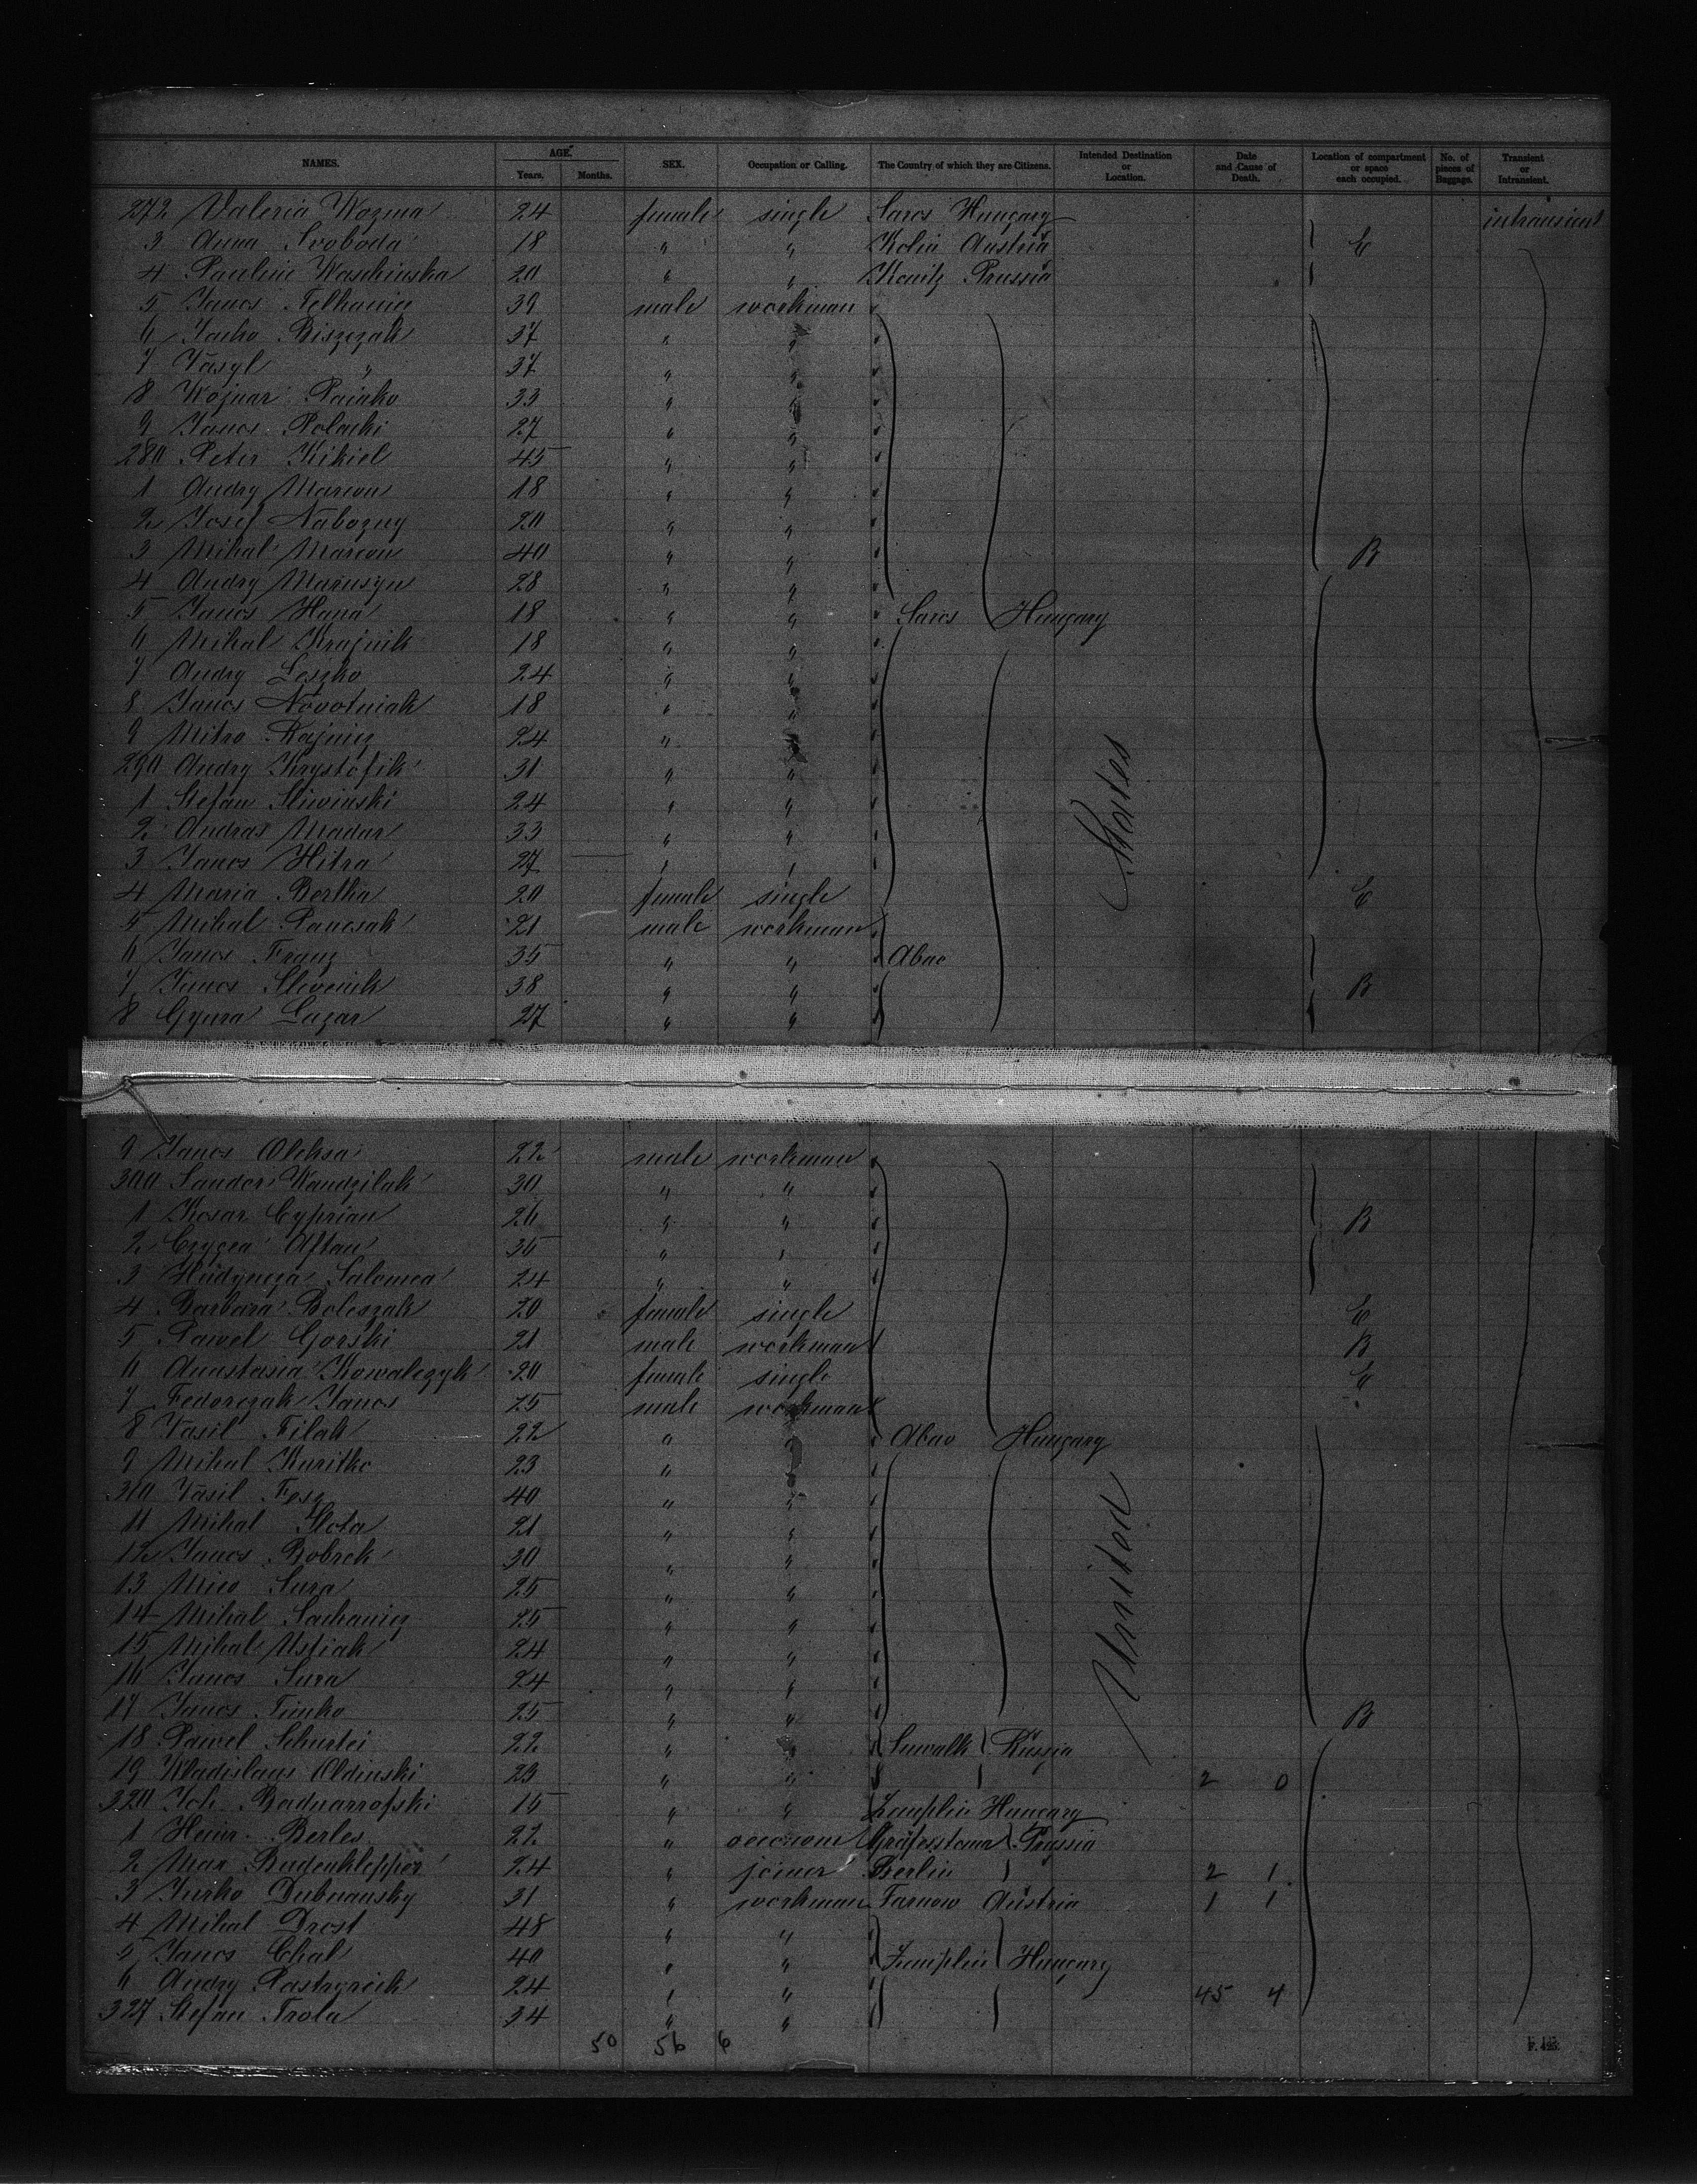 NAMES. AGE. Years. Months. SEX. Occupation or Calling. The Country of which they are Citizens. Intended Destination or Location. Date and Cause of Death. Location of compartment or space each occupied. No. of pieces of Baggage. Transient or Intransient.
272 Valeria Wozma 24 female single Saros Hungary intransient
3 Anna Svoboda 18 " " Kolin Austria E
4 Pauline Waschinska 20 " " Konitz Prussia
5 Janos 39 male workman
6 Biszczak 37 " "
7 Vasyl " 37 " "
8 Wojnar 33 " "
9 Janos Polacki 27 " "
280 Peter Kikiel 45 " "
1 Andry Marcou 18 " "
2 Josef Nabozny 20 " "
3 Mihal Marcou 40 " " B
4 Andry Marusyn 28 " "
5 Janos Hana 18 " " Saros Hungary
6 Mihal Krajnik 18 " "
7 Andry Leszko 24 " "
8 Janos Novotniak 18 " "
9 Mitro Rajnicz 24 " "
290 Andry Krystofik 31 " "
1 Stefan Sliwinski 24 " "
2 Andras Madar 33 " "
3 Janos Hitra 27 " "
4 Maria Bertha 20 female single E
5 Mihal Pancsak 21 male workman
6 Janos Franz 35 " " Abao
7 Janos 38 " " B
8 Gyura Lazar 27 " "
States
9 Janos Oleksa 22 male workman
300 Sandor Wandzilak 30 " "
1 Kosar Cyprian 26 " " B
2 Aftan 35 " "
3 Hudyncza Salomea 24 " "
4 Barbara Boleszak 20 female single E
5 Pawel Gorski 21 male workman B
6 Anastasia Kowalczyk 20 female single E
7 Fedorczak Janos 25 male workman
8 Vasil Filak 22 " " Abao Hungary
9 Mihal Kuritko 23 " "
310 Vasil 40 " "
11 Mihal Slota 21 " "
12 Janos Bobrek 30 " "
13 Mico Sura 25 " "
14 Mihal Sachanicz 25 " "
15 Mihal Ustiak 24 " "
16 Janos Sura 24 " "
17 Janos Timko 25 " " B
18 Pawel 22 " " Suwalk Russia
19 Wladislaus Oldinski 23 " " 2 0
320 Joh. 15 " " Zemplin Hungary
1 Heinr. Berles 22 " oeconom Prussia
2 Max Budenklepper 24 " joiner Berlin 2 1
3 Jurko Dubnansky 31 " workman Tarnow Austria 1 1
4 Mihal Drost 48 " "
5 Janos Chal 40 " " Zemplin Hungary
6 Andry 24 " " 45 4
327 Stefan Trola 34 " "
United
50 56 6
F. 425.